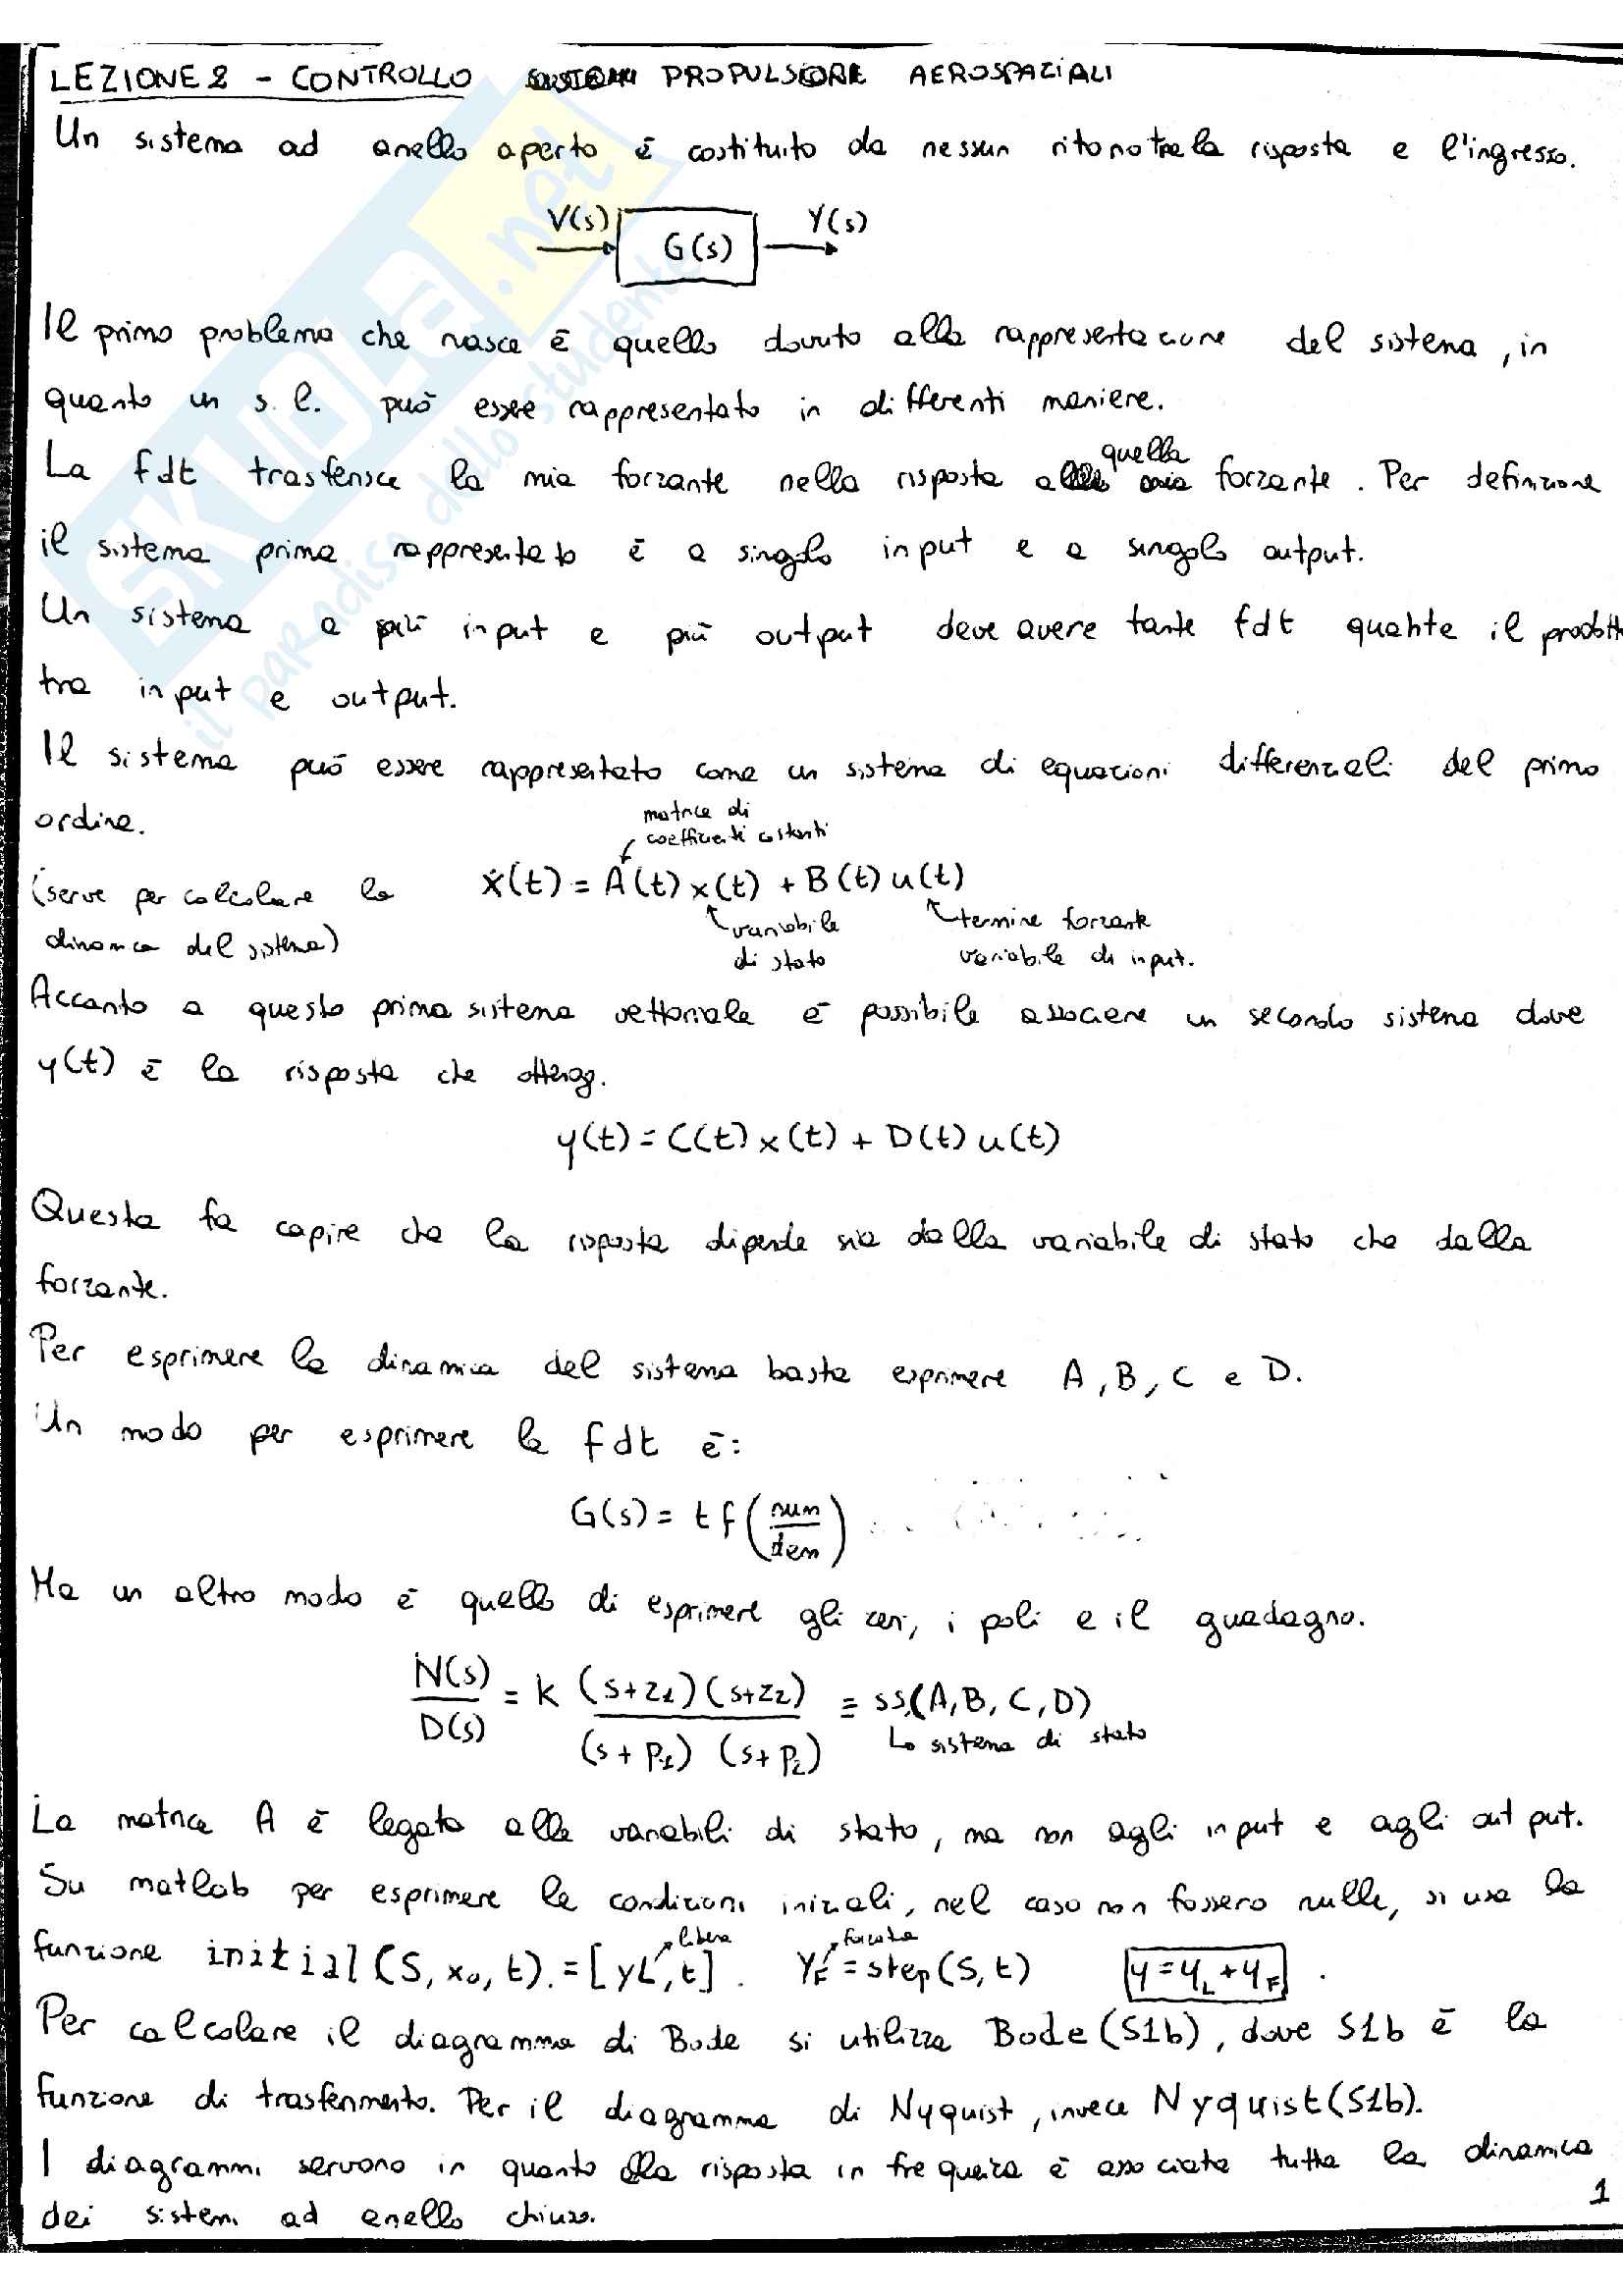 LEZIONE 2 - CONTROLLO PROPULSORE AEROSPAZIALI
Un sistema ad anello aperto è costituito da nessun ritorno tra la risposta e l'ingresso.
V(s) G(s) Y(s)
Il primo problema che nasce è quello dovuto alla rappresentazione del sistema, in
quanto un s.l. può essere rappresentato in differenti maniere.
La fdt trasferisce la mia forzante nella risposta a quella forzante. Per definizione
il sistema prima rappresentato è a singolo input e a singolo output.
Un sistema a più input e più output deve avere tante fdt quante il prodotto
tra input e output.
Il sistema può essere rappresentato come un sistema di equazioni differenziali del primo
ordine.
matrice di
coefficienti costanti
(serve per calcolare la
dinamica del sistema)
ẋ(t) = A(t) x(t) + B(t) u(t)
variabile
di stato
termine forzante
variabile di input.
Accanto a questo primo sistema vettoriale è possibile associare un secondo sistema dove
y(t) è la risposta che ottengo.
y(t) = C(t) x(t) + D(t) u(t)
Questa fa capire che la risposta dipende sia dalla variabile di stato che dalla
forzante.
Per esprimere la dinamica del sistema basta esprimere A, B, C e D.
Un modo per esprimere la fdt è:
G(s) = tf(num/den)
Ma un altro modo è quello di esprimere gli zeri, i poli e il guadagno.
N(s)/D(s) = K (s+z1)(s+z2)/(s+p1)(s+p2) ≡ ss(A, B, C, D)
↳ sistema di stato
La matrice A è legata alle variabili di stato, ma non agli input e agli output.
Su matlab per esprimere le condizioni iniziali, nel caso non fossero nulle, si usa la
libera forzata
funzione initial(S, x0, t) = [yL, t]. YF = step(S, t) y = yL + yF .
Per calcolare il diagramma di Bode si utilizza Bode(S1b), dove S1b è la
funzione di trasferimento. Per il diagramma di Nyquist, invece Nyquist(S1b).
I diagrammi servono in quanto alla risposta in frequenza è associata tutta la dinamica
dei sistemi ad anello chiuso.
1
SKUOLA.net
il paradiso dello studente